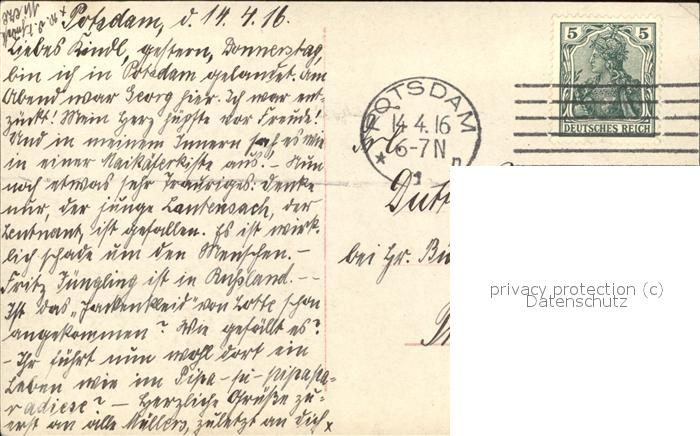 Potsdam, d. 14. 4. 16.
Liebes Kindl, gestern, Donnerstag,
bin ich in Potsdam gelandet. Am
Abend war Georg hier. Ich war ent-
zückt! Mein Herz hüpfte vor Freude!
Und in meinem Innern sah es wie
in einer Maikäferkiste aus! – Nun
noch etwas sehr Trauriges: denke
nur, der junge Lautensach, der
Leutnant, ist gefallen. Es ist wirk-
lich schade um den Menschen. –
Fritz Jüngling ist in Rußland. – –
Ist das „Jackenkleid" von Lotte schon
angekommen? Wie gefällt es?
– Ihr führt nun wohl dort ein
Leben wie im Pipa-pi-pipapa-
radiese? – Herzliche Grüße zu-
erst an alle Müllers, zuletzt an dich,
POTSDAM
14.4.16
6-7 N
5 5
DEUTSCHES REICH
bei Hr.
privacy protection (c)
Datenschutz